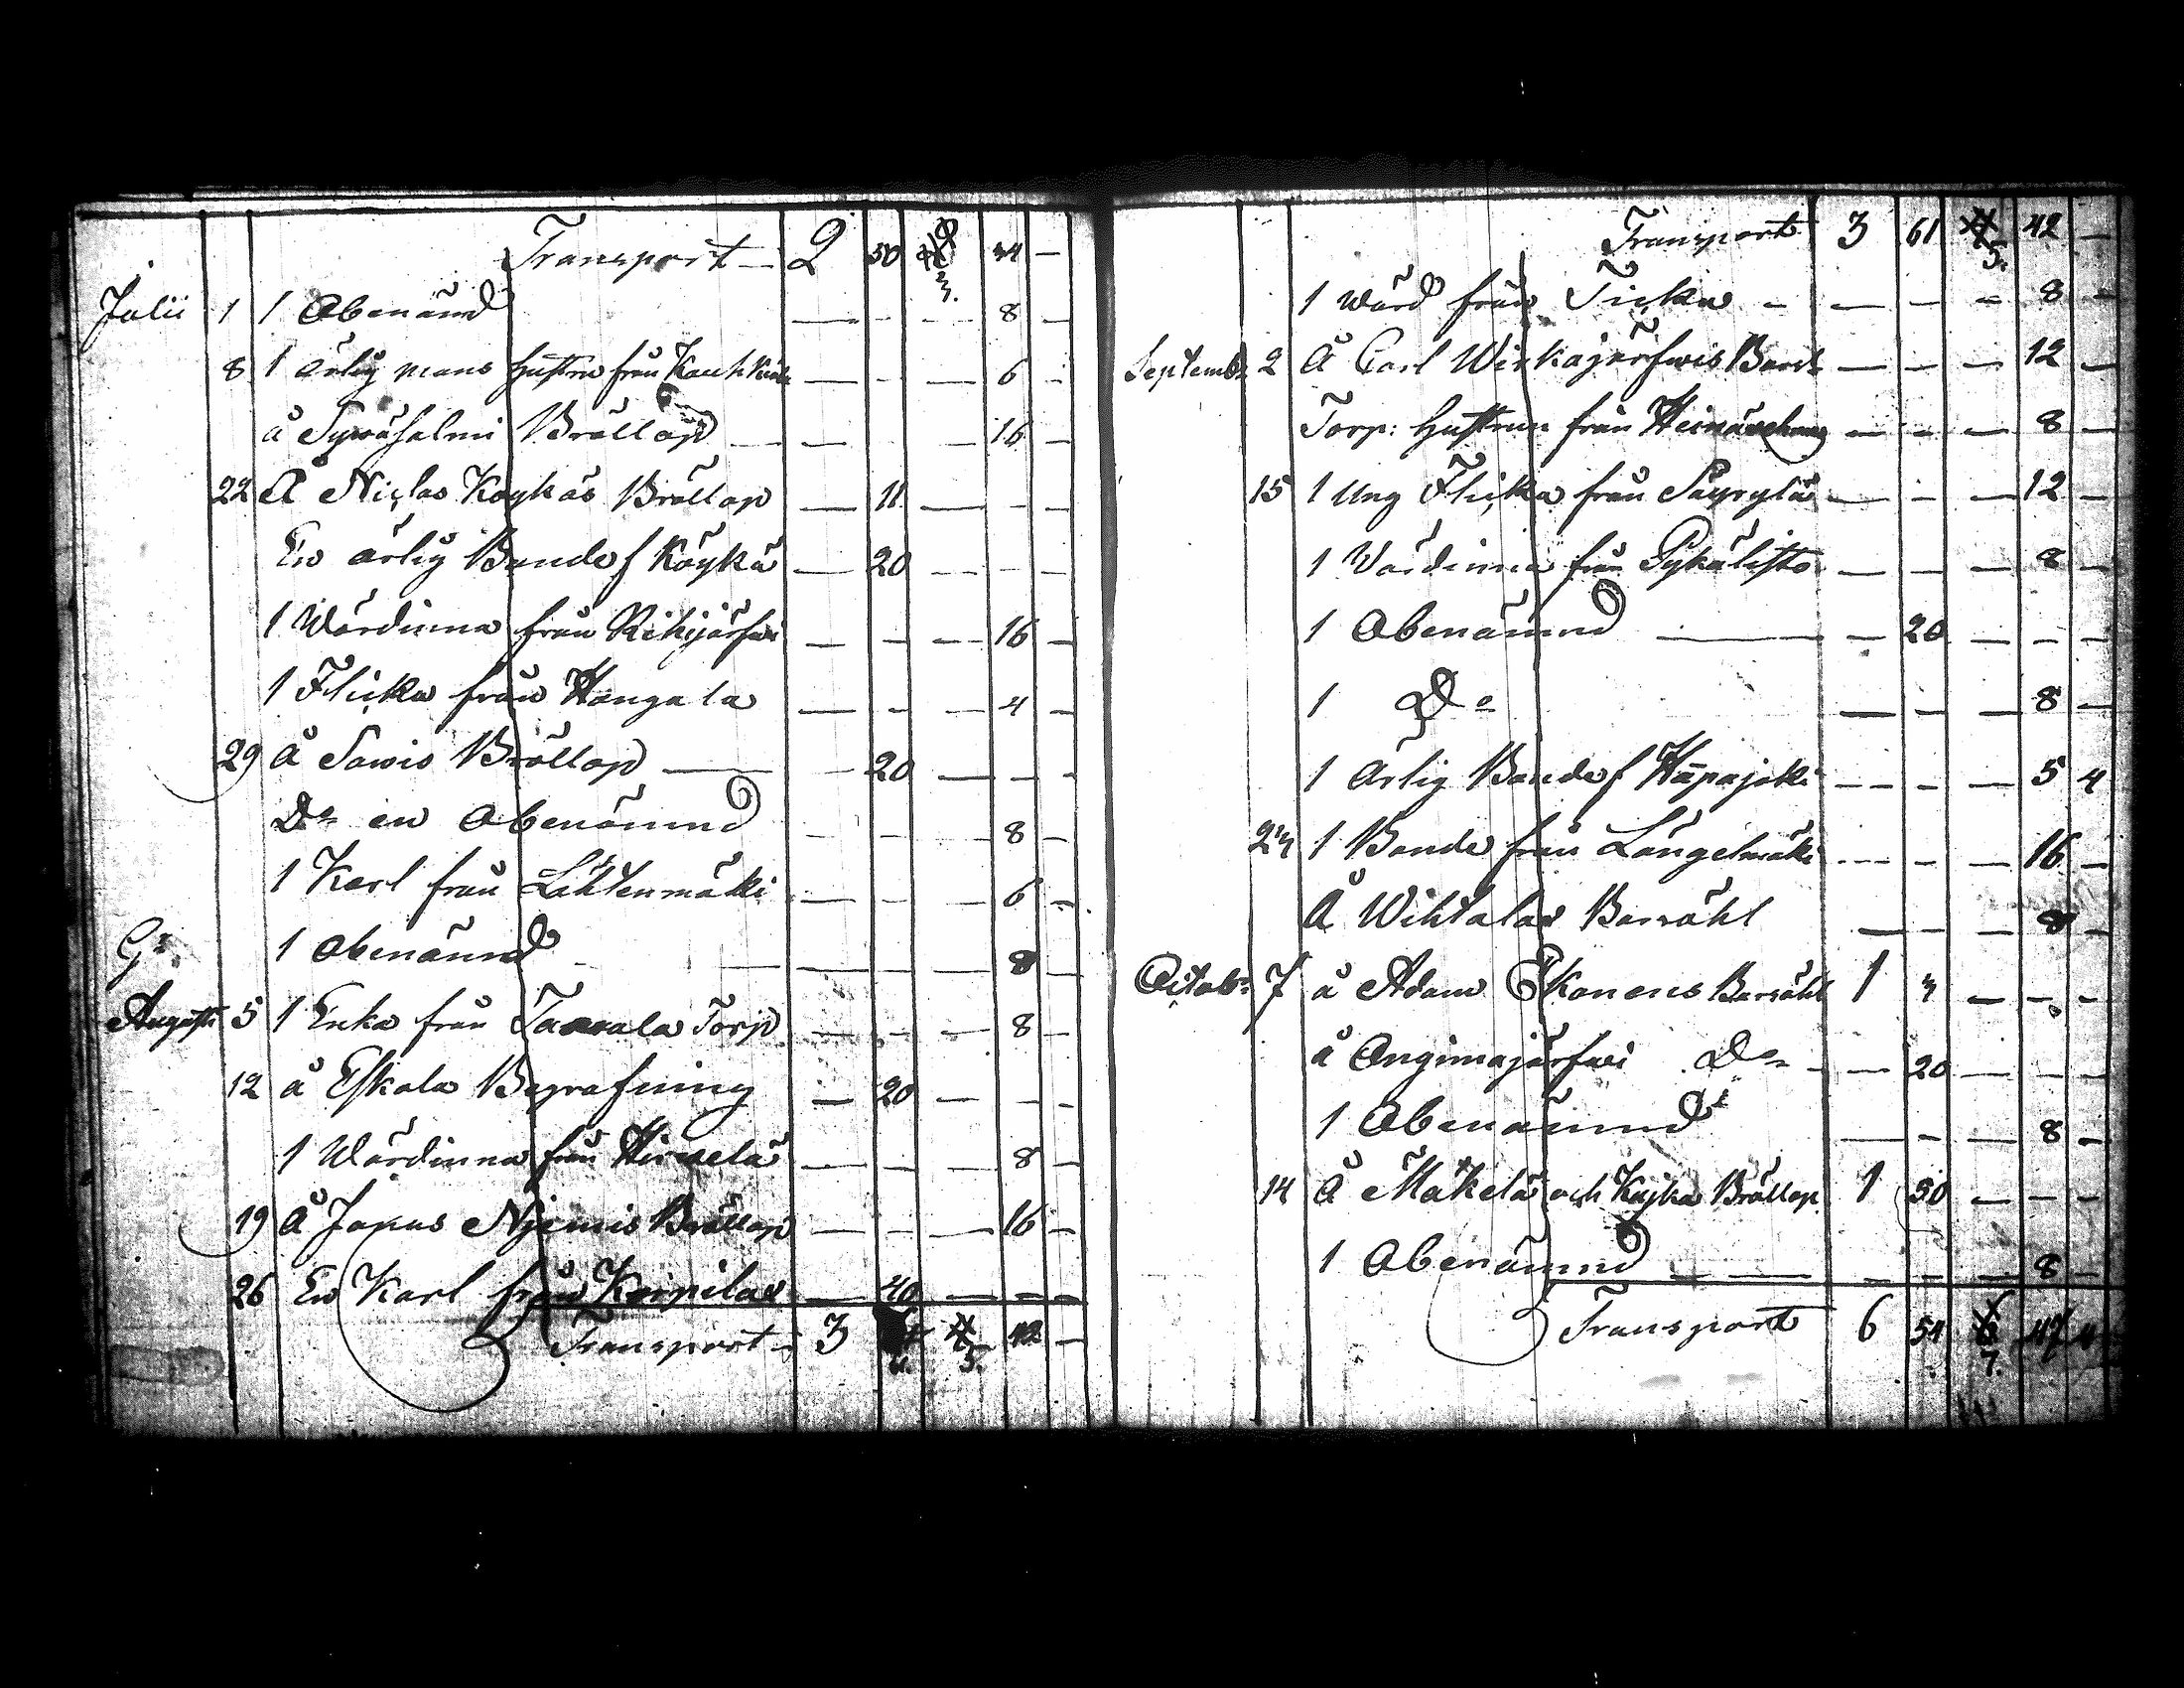 Transport — 2 50 3. 34 —
Julii 1 1 Obenämd — — — 8 —
8 1 ärlig mans Hustru från — — — 6 —
å Sywäsalmi Bröllop — — — 16 —
22 Å Niclas Köykäs Bröllop — 11 — — —
En ärlig Bonde f Köykä — 20 — — —
1 Wärdinna från Rikijärfwi — — — 16 —
1 Flicka från Hangala — — — 4 —
29 Å Sawis Bröllop — 20 — — —
Do en Obenämnd — — — 8 —
1 Karl från Lihtenmäki — — — 6 —
1 Obenämnd — — — 8 —
Augusti 5 1 Enka från Torp — — — 8 —
12 å Eskola Begrafning — 20 — — —
1 Wärdinna från Hirwelä — — — 8 —
19 Å Niemis Bröllop — — — 16 —
26 En Karl från Korpilax — 40 — — —
Transport — 3 5. 42 —
Transport 3 61 5. 42 —
1 Wärd från Ticka — — — — 8 —
Septembr 2 Å Carl Wirkajärfwis — — — 12 —
Torp: Hustrun från — — — 8 —
15 1 Ung Flicka från Säyrylä — — — 12 —
1 Wärdinna från Pykälistö — — — 8 —
1 Obenämnd — — 20 — — —
1 Do — — — 8 —
1 Ärlig Bonde f Hapajoki — — — 5 4
23 1 Bonde från Längelmäki — — — 16 —
Å Wihtalax Barsöhl — — — 8
Octobr 7 å Adam Barsöhl 1 3 — — —
å Onginojärfwi Do — — 20 — — —
1 Obenämnd — — — 8 —
14 Å Mäkelä och Bröllop 1 50 — — —
1 Obenämnd — — — — — 8 —
Transport 6 54 7. 47 4